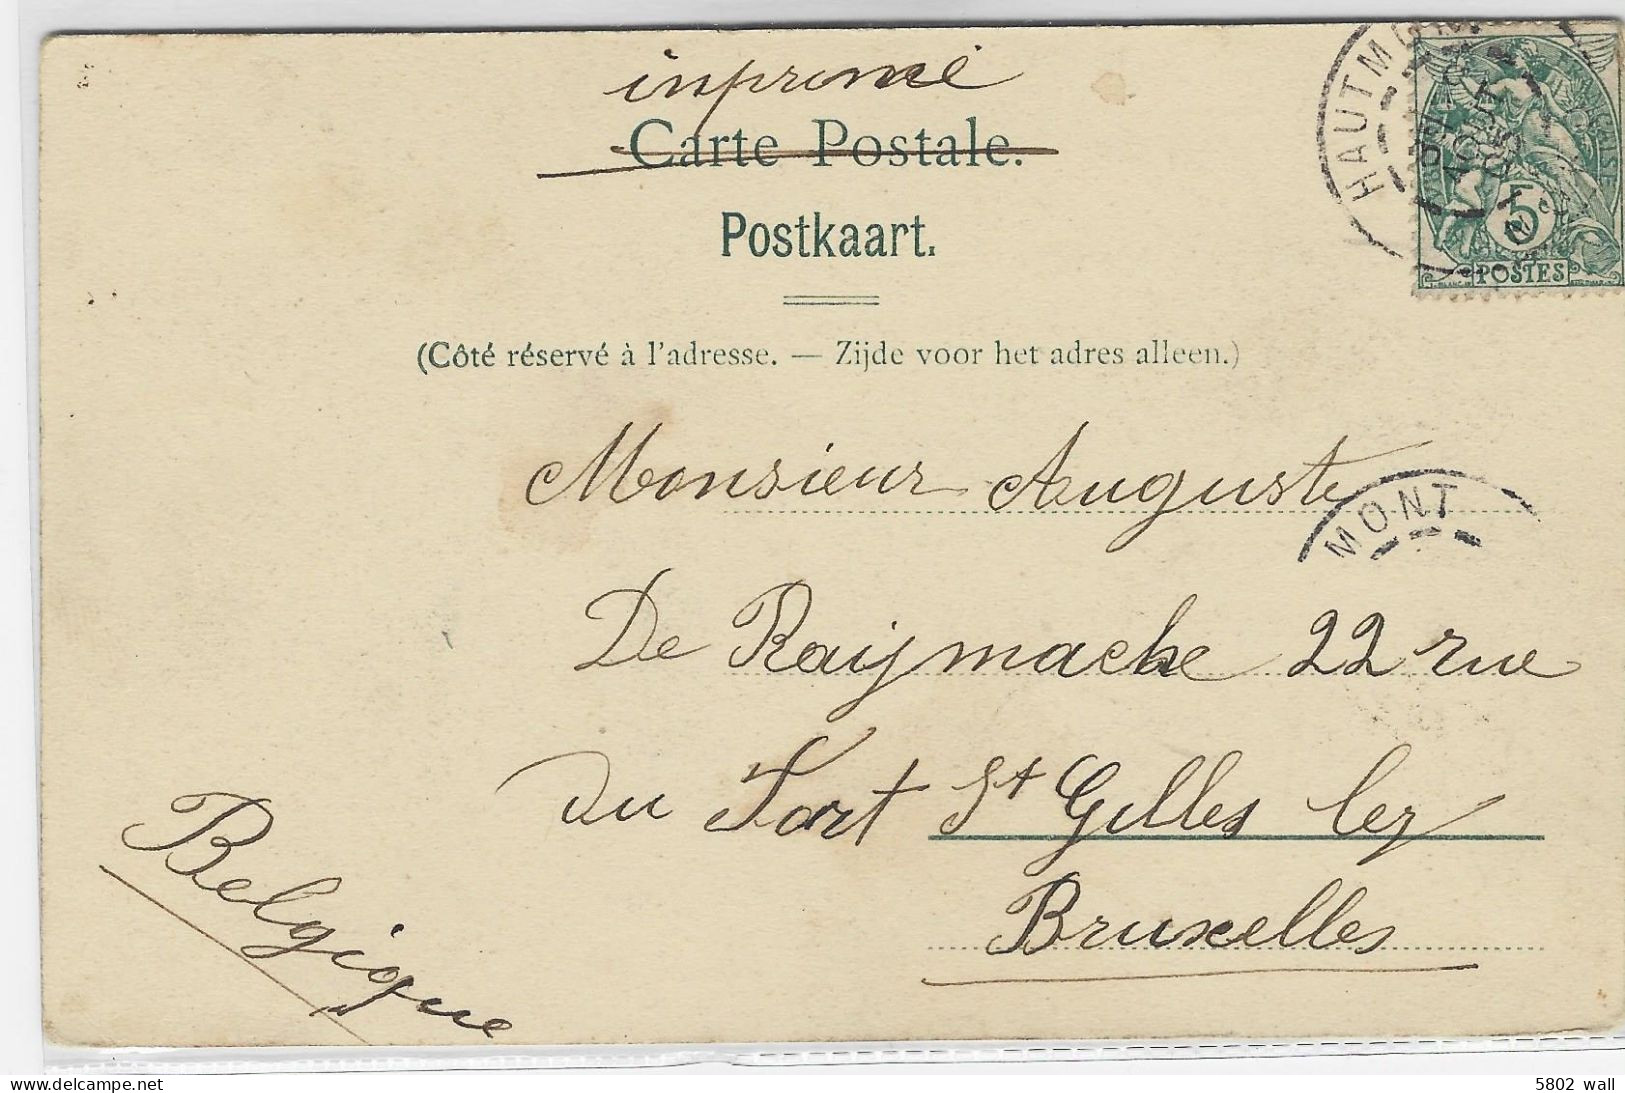 inprimé
Carte Postale.
Postkaart.
(Côté réservé à l'adresse. — Zijde voor het adres alleen.)
HAUTMON
AOUT
5c
POSTES
Monsieur Auguste
MONT
De Raijmacke 22 rue
du Fort St Gilles lez
Bruxelles
Belgique
5802 wall